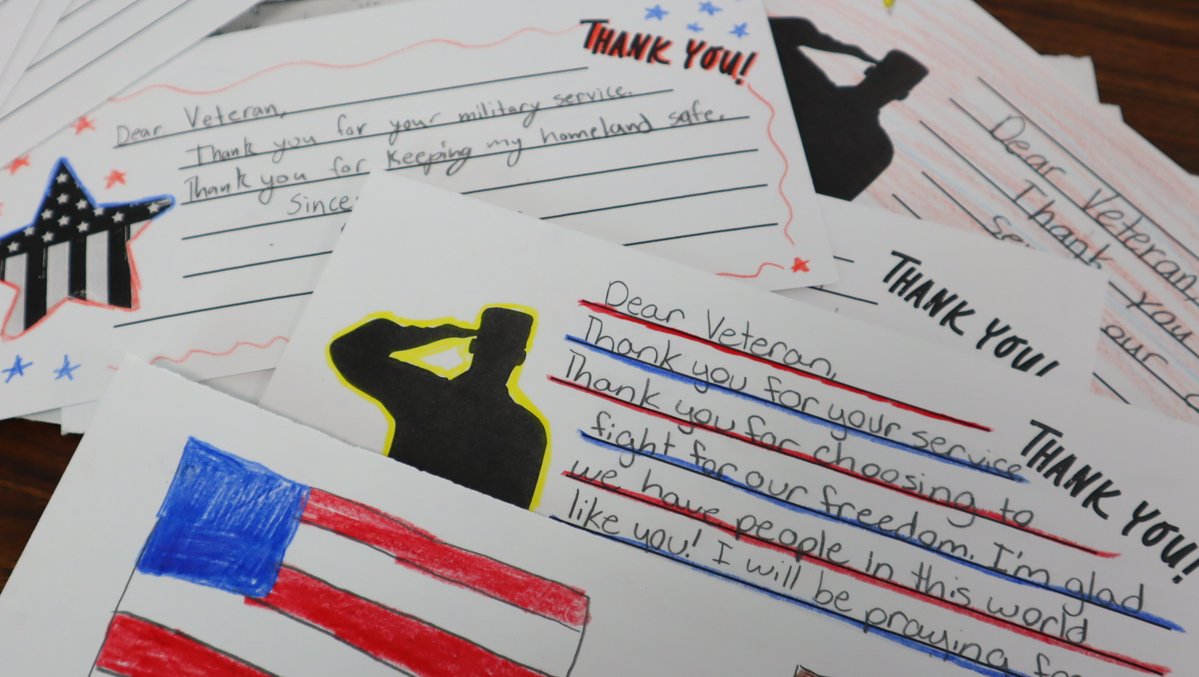 THANK YOU!
Dear Veteran,
Thank you for your military service.
Thank you for keeping my homeland safe.
Since
Dear Veteran,
Thank
you
our
THANK YOU!
Dear Veteran,
Thank you for your service
Thank you for choosing to
fight for our freedom. I'm glad
we have people in this world
like you! I will be praying
THANK YOU!